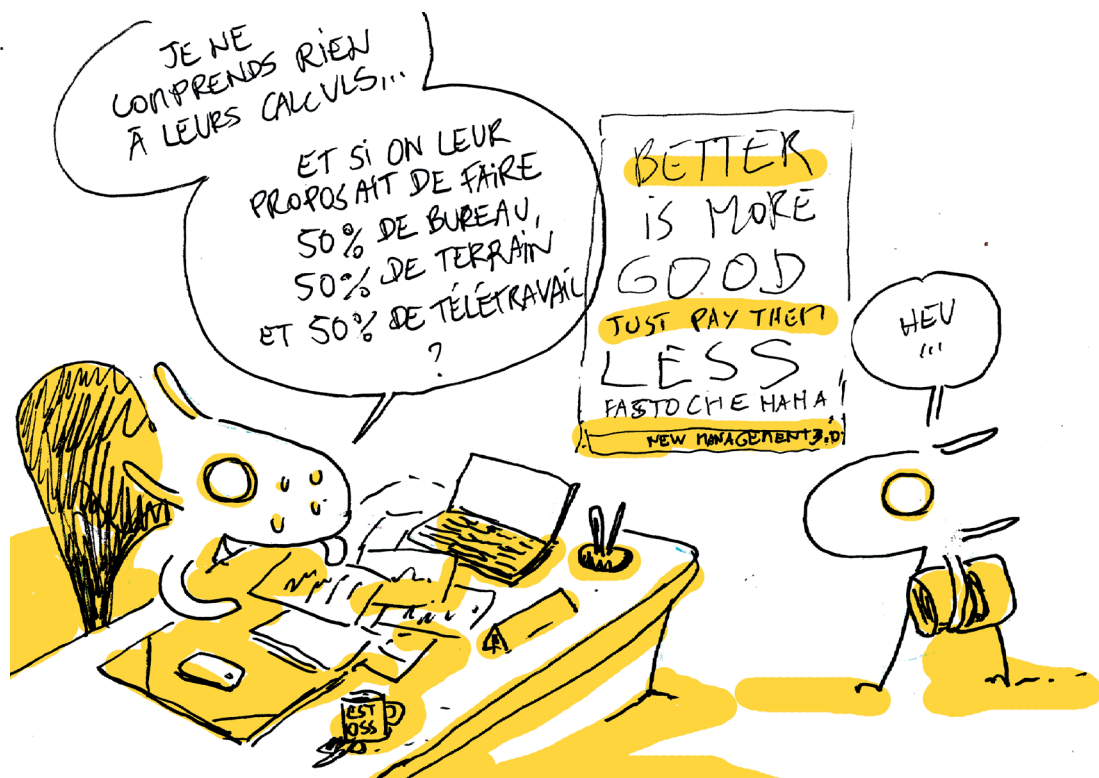 JE NE
COMPRENDS RIEN
À LEURS CALCULS...
ET SI ON LEUR
PROPOSAIT DE FAIRE
50% DE BUREAU,
50% DE TERRAIN
ET 50% DE TÉLÉTRAVAIL
?
BETTER
iS MORE
GOOD
JUST PAY THEM
LESS
FASTOCHE HAHA!
NEW MANAGEMENT 3.0
HEU
...
EST
OSS